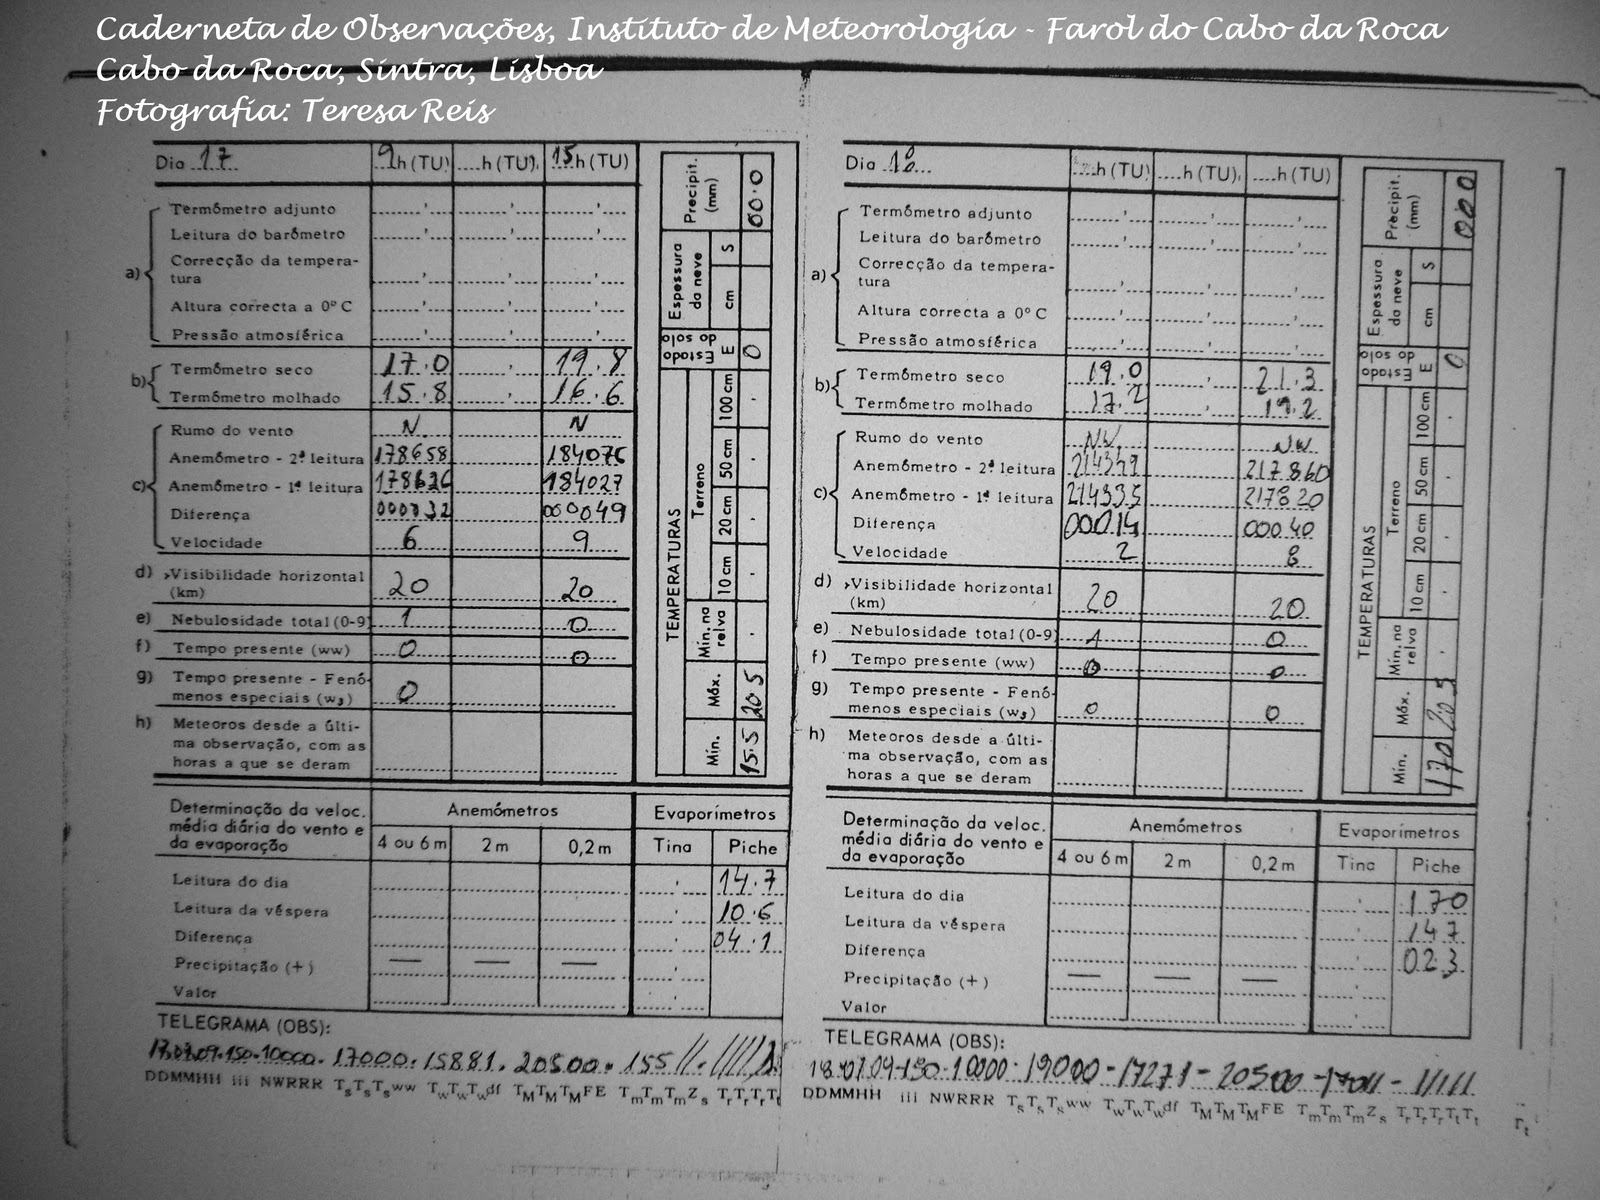 Caderneta de Observações, Instituto de Meteorologia - Farol do Cabo da Roca
Cabo da Roca, Sintra, Lisboa
Fotografia: Teresa Reis
Dia 17 9h (TU) ....h (TU). 15h (TU)
a) Termômetro adjunto
Leitura do barômetro
Correcção da tempera-
tura
Altura correcta a 0º C
Pressão atmosférica
b) Termômetro seco 17.0 19.8
Termômetro molhado 15.8 16.6
c) Rumo do vento N N
Anemômetro - 2ª leitura 178658 184076
Anemômetro - 1ª leitura 178626 184027
Diferença 000032 000049
Velocidade 6 9
d) Visibilidade horizontal
(km) 20 20
e) Nebulosidade total (0-9) 1 0
f) Tempo presente (ww) 0 0
g) Tempo presente - Fenó-
menos especiais (w₃) 0
h) Meteoros desde a últi-
ma observação, com as
horas a que se deram
Precipit. (mm) 00.0
Espessura da neve S cm
Estado do solo E 0
TEMPERATURAS
Terreno 100 cm 50 cm 20 cm 10 cm
Mín. na relva
Máx. 205
Mín. 15.5
Determinação da veloc.
média diária do vento e
da evaporação
Anemômetros Evaporímetros
4 ou 6 m 2 m 0,2 m Tina Piche
Leitura do dia 14.7
Leitura da véspera 10.6
Diferença 04.1
Precipitação (+) — — —
Valor
TELEGRAMA (OBS):
17.07.09.150.10000. 17000. 15881. 20500. 155//. /////
DDMMHH iii NWRRR TsTsTsww TwTwTwdf TMTMTMFE TmTmTmZs TrTrTrTt
Dia 18 ....h (TU) ....h (TU). ....h (TU)
a) Termômetro adjunto
Leitura do barômetro
Correcção da tempera-
tura
Altura correcta a 0º C
Pressão atmosférica
b) Termômetro seco 19.0 21.3
Termômetro molhado 17.2 19.2
c) Rumo do vento NW NW
Anemômetro - 2ª leitura 214349 217860
Anemômetro - 1ª leitura 214335 217820
Diferença 00014 00040
Velocidade 2 8
d) Visibilidade horizontal
(km) 20 20
e) Nebulosidade total (0-9) 1 0
f) Tempo presente (ww) 0 0
g) Tempo presente - Fenó-
menos especiais (w₃) 0 0
h) Meteoros desde a últi-
ma observação, com as
horas a que se deram
Precipit. (mm) 000
Espessura da neve S cm
Estado do solo E 0
TEMPERATURAS
Terreno 100 cm 50 cm 20 cm 10 cm
Mín. na relva
Máx. 205
Mín. 170
Determinação da veloc.
média diária do vento e
da evaporação
Anemômetros Evaporímetros
4 ou 6 m 2 m 0,2 m Tina Piche
Leitura do dia 170
Leitura da véspera 147
Diferença 02.3
Precipitação (+) — — —
Valor
TELEGRAMA (OBS):
18.07.09-150-10000-19000-17271-20500-170//-/////
DDMMHH iii NWRRR TsTsTsww TwTwTwdf TMTMTMFE TmTmTmZs TrTrTrTtTt